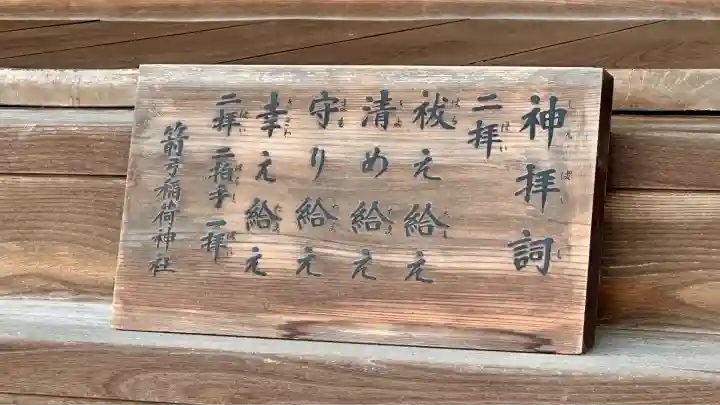 神拝詞
二拝
祓え給え
清め給え
守り給え
幸え給え
二拝 二拍手 一拝
箭弓稲荷神社